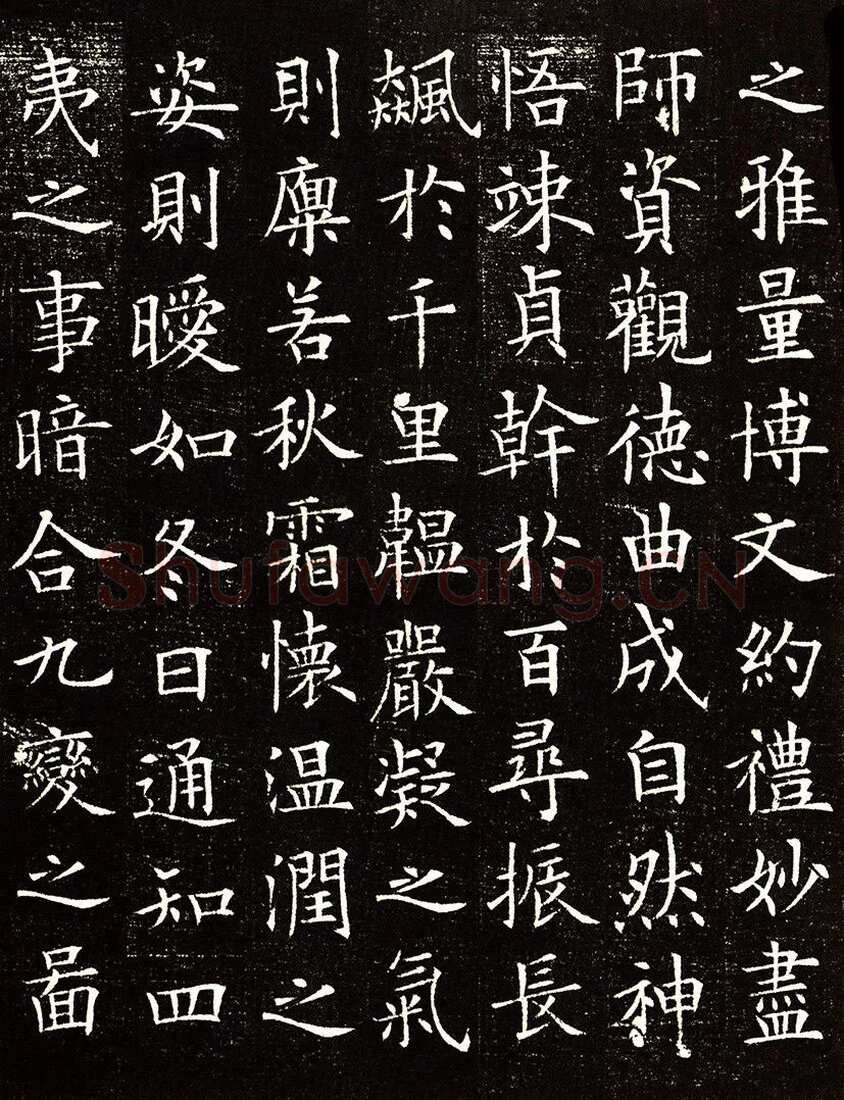 之雅量博文約禮妙盡
師資觀德曲成自然神
悟竦貞幹於百尋振長
飆於千里韞嚴凝之氣
則廩若秋霜懷温潤之
姿則曖如冬日通知四
夷之事暗合九變之啚
Shufawang.CN